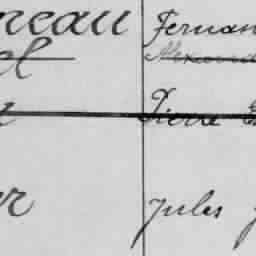 neau Fernan
el Alexand
Pierre
er Jules